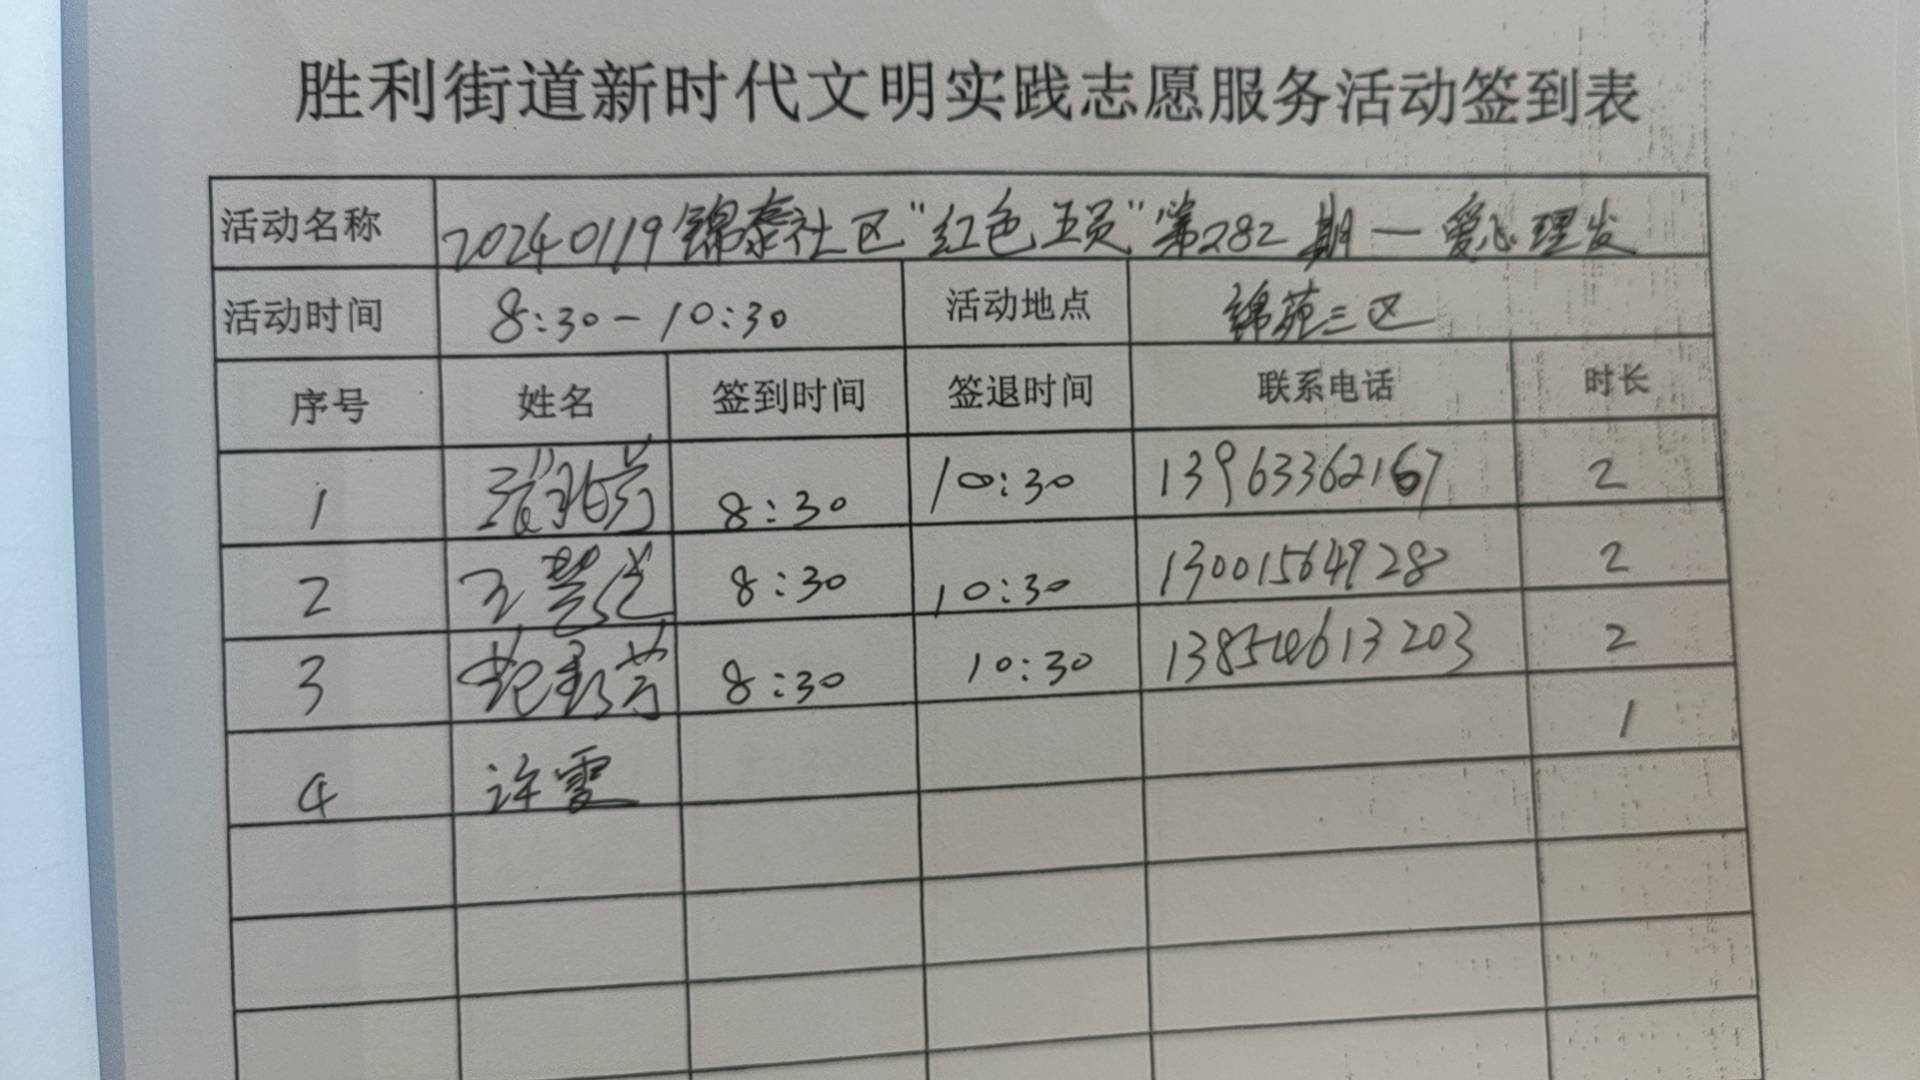 胜利街道新时代文明实践志愿服务活动签到表
活动名称 20240119锦泰社区“红色五员”第282期一爱心理发
活动时间 8:30-10:30 活动地点 锦苑三区
序号 姓名 签到时间 签退时间 联系电话 时长
1 张兆芳 8:30 10:30 13963362167 2
2 王慧兰 8:30 10:30 13001564928 2
3 8:30 10:30 2
4 许雯 1